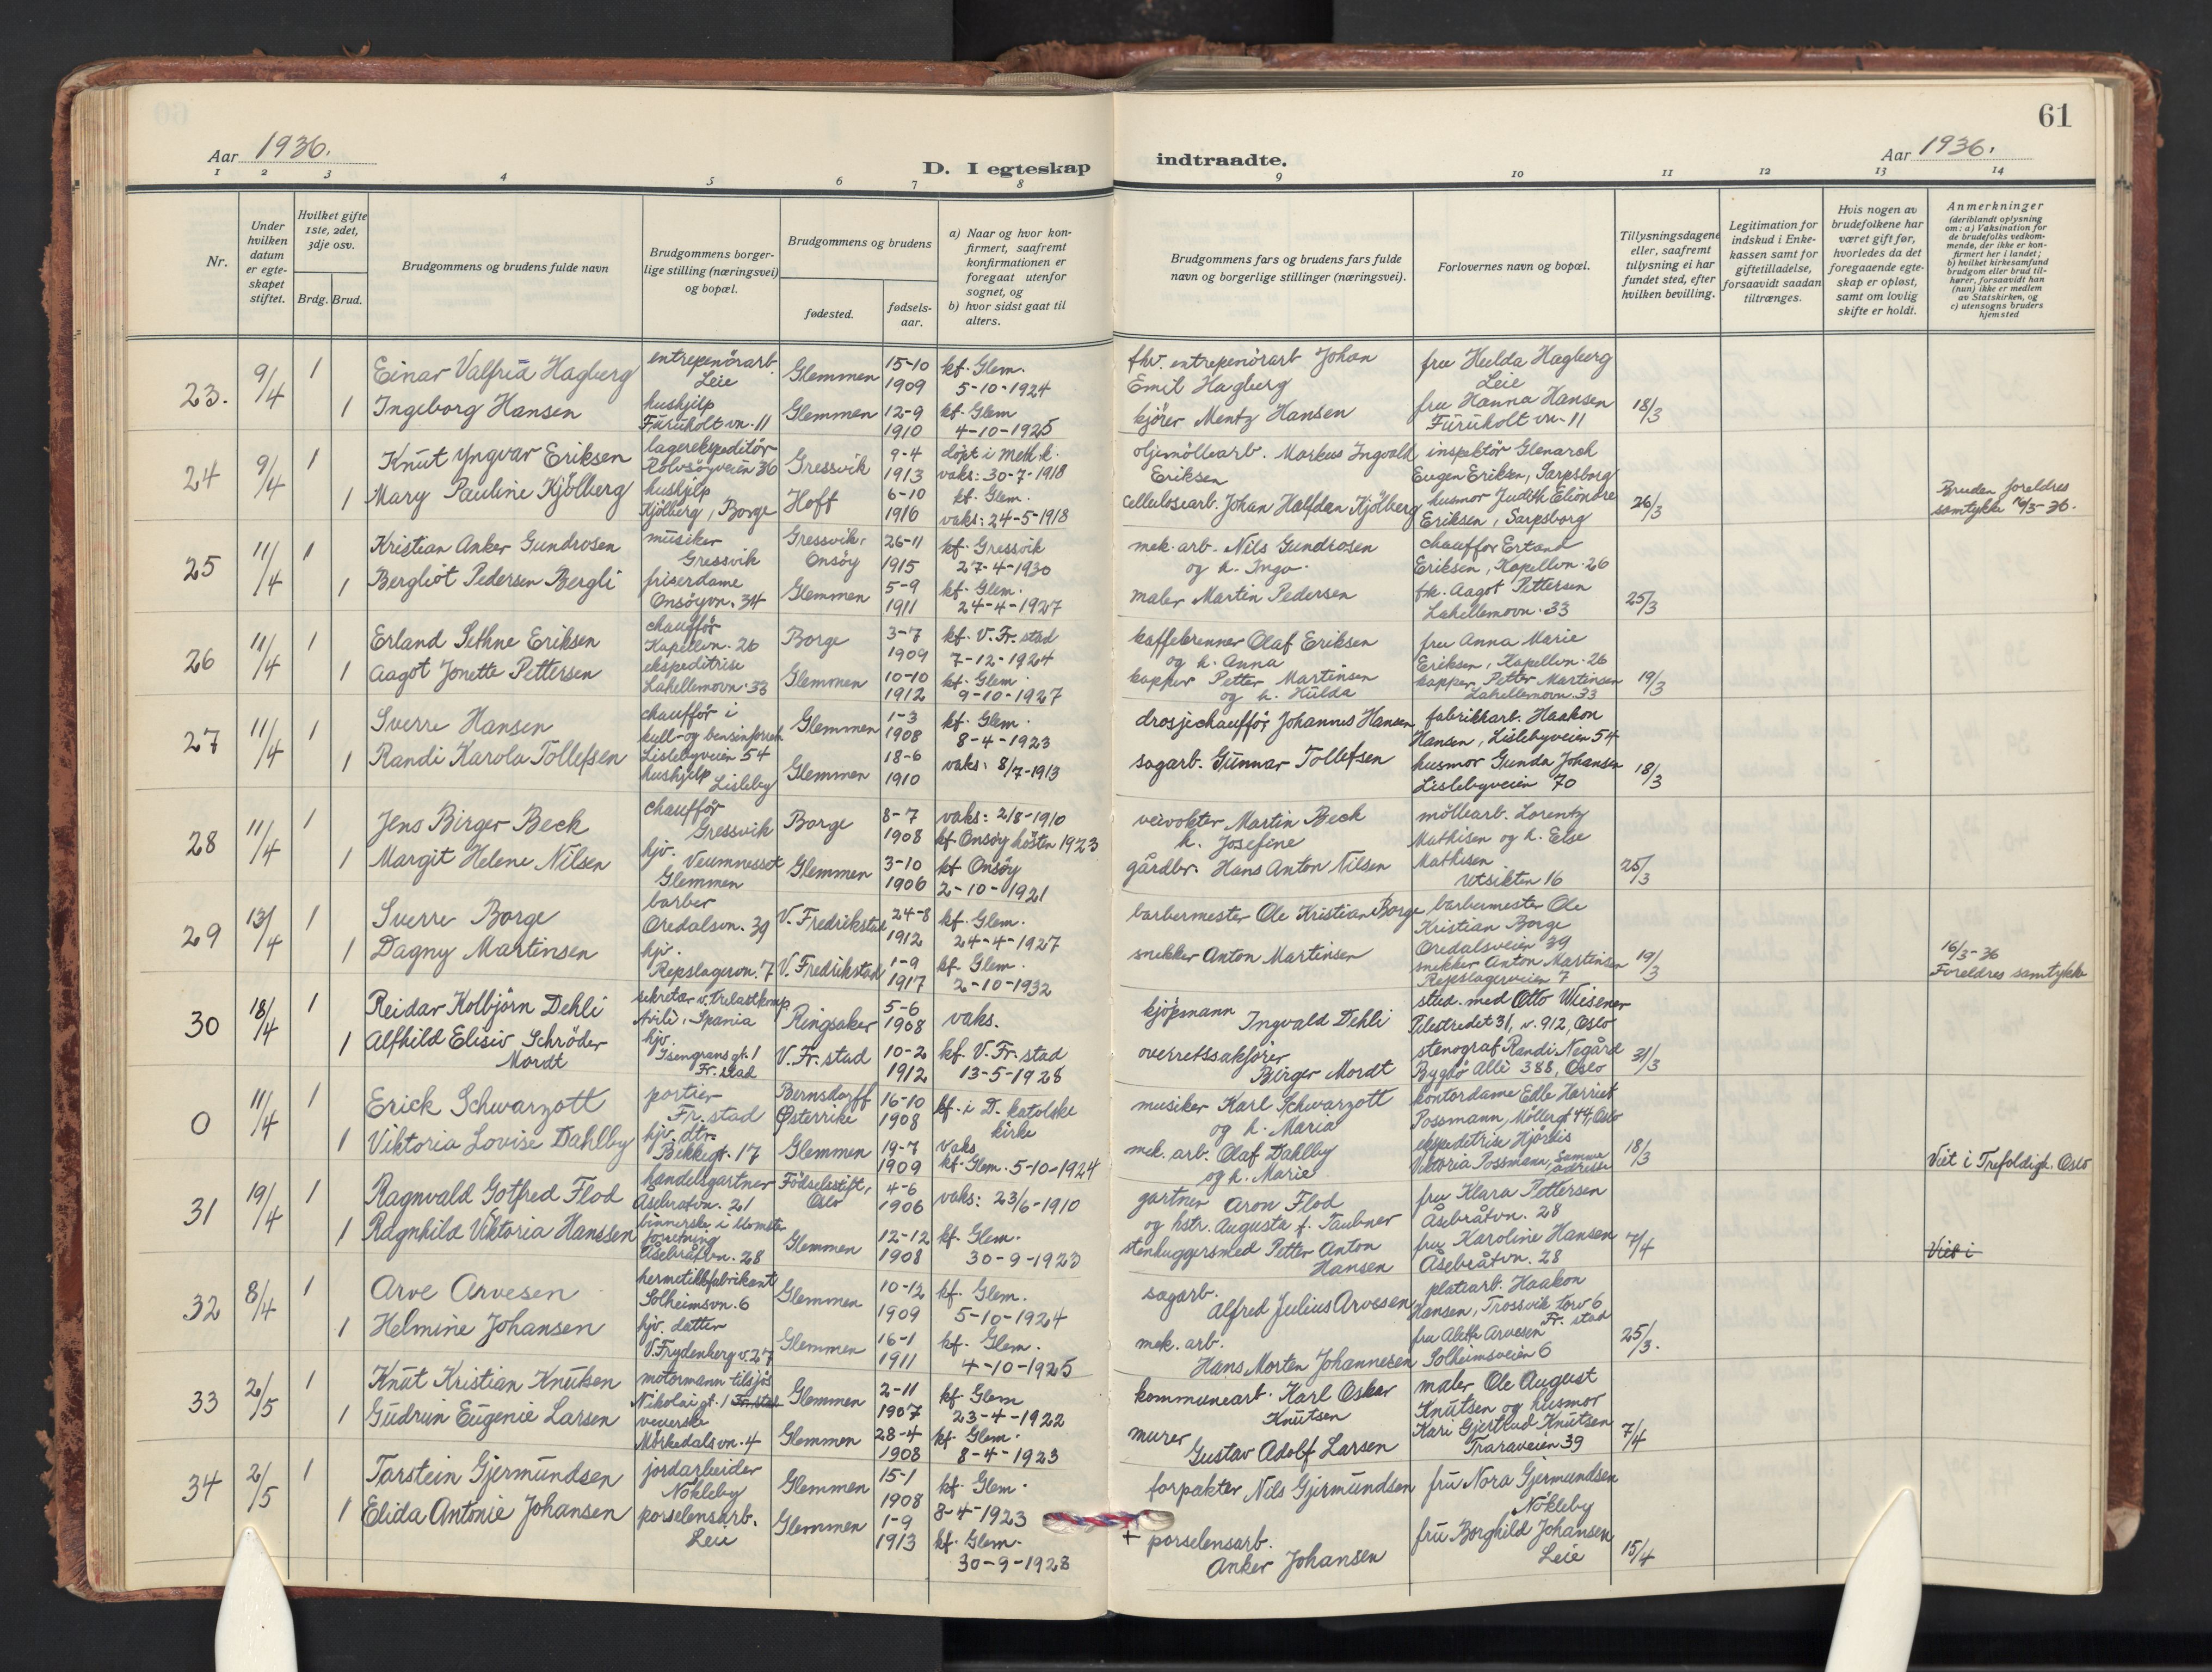 61
Aar 1936.
D. I egteskap indtraadte.
Aar 1936.
1 2 3 4 5 6 7 8 9 10 11 12 13 14
Nr.
Under hvilken datum er egteskapet stiftet.
Hvilket gifte 1ste, 2det, 3dje osv.
Brdg. Brud.
Brudgommens og brudens fulde navn
Brudgommens borgerlige stilling (næringsvei) og bopæl.
Brudgommens og brudens
fødested.
fødselsaar.
a) Naar og hvor konfirmert, saafremt konfirmationen er foregaat utenfor sognet, og
b) hvor sidst gaat til alters.
Brudgommens fars og brudens fars fulde navn og borgerlige stillinger (næringsvei).
Forlovernes navn og bopæl.
Tillysningsdagene eller, saafremt tillysning ei har fundet sted, efter hvilken bevilling.
Legitimation for indskud i Enkekassen samt for giftetilladelse, forsaavidt saadan tiltrænges.
Hvis nogen av brudefolkene har været gift før, hvorledes da det foregaaende egteskap er opløst, samt om lovlig skifte er holdt.
Anmerkninger
(deriblandt oplysning om: a) Vaksination for de brudefolks vedkommende, der ikke er konfirmert her i landet; b) hvilket kirkesamfund brudgom eller brud tilhører, forsaavidt han (hun) ikke er medlem av Statskirken, og c) utensogns bruders hjemsted
23. 9/4 1 Einar Valfrid Hagberg entrepenörarb. Leie Glemmen 15-10 1909 kf. Glem. 5-10-1924 fhv. entrepenörarb Johan Emil Hagberg fru Hulda Hagberg Leie
1 Ingeborg Hansen hushjelp Furuholt vn. 11 Glemmen 12-9 1910 kf. Glem 4-10-1925 kjører Mentz Hansen fru Hanna Hansen Furuholt vn. 11 18/3
24 9/4 1 Knut Yngvar Eriksen lagerekspeditör Rolvsöyveien 36 Gressvik 9-4 1913 döpt i meth.k. vaks: 30-7-1918 oljemöllearb. Markus Ingvald Eriksen inspektør Glenarch Eugen Eriksen, Sarpsborg
1 Mary Pauline Kjölberg hushjelp Kjölberg, Borge Hoff 6-10 1916 kf. Glem. vaks: 24-5-1918 cellulosearb. Johan Halfdan Kjölberg husmor Judith Elionore Eriksen, Sarpsborg 26/3 Bruden foreldres samtykke 16/3-36.
25 11/4 1 Kristian Anker Gundrosen musiker Gressvik Gressvik, Onsöy 26-11 1915 kf. Gressvik 27-4-1930 mek. arb. Nils Gundrosen og h. Inga. chauffør Erland Eriksen, Kapellvn. 26
1 Bergliot Pedersen Bergli friserdame Onsöyvn. 34 Glemmen 5-9 1911 kf. Glem. 24-4-1927 maler Martin Pedersen frk. Aagot Pettersen Lahellemovn. 33 25/3
26 11/4 1 Erland Sethne Eriksen chauffør Kapellvn. 26 Borge 3-7 1909 kf. V. Fr. stad 7-12-1924 kaffebrenner Olaf Eriksen og h. Anna fru Anna Marie Eriksen, Kapellvn. 26
1 Aagot Jonette Pettersen ekspeditrise Lahellemovn. 33 Glemmen 10-10 1912 kf. Glem. 9-10-1927 kapper Petter Martinsen og h. Hulda kapper Petter Martinsen Lahellemovn. 33 19/3
27 11/4 1 Sverre Hansen chauffør i kull- og bensinforretn Lislebyveien 54 Glemmen 1-3 1908 kf. Glem. 8-4-1923 drosjechauffør Johannes Hansen fabrikkarb. Haakon Hansen, Lislebyveien 54
1 Randi Karola Tollefsen hushjelp Lisleby Glemmen 18-6 1910 vaks: 8/7-1913 sagarb. Gunnar Tollefsen husmor Gunda Johansen Lislebyveien 70 18/3
28 11/4 1 Jens Birger Beck chauffør Gressvik Borge 8-7 1908 vaks: 2/8-1910 kf Onsöy hösten 1923 veivokter Martin Beck h. Josefine möllearb. Lorentz Mathisen og h. Else Mathisen Utsikten 16
1 Margit Helene Nilsen hjv. Veumnesset Glemmen Glemmen 3-10 1906 kf Onsöy 2-10-1921 gårdbr. Hans Anton Nilsen 25/3
29 13/4 1 Sverre Borge barber Oredalsvn. 39 V. Fredrikstad 24-8 1912 kf. Glem. 24-4-1927 barbermester Ole Kristian Borge barbermester Ole Kristian Borge Oredalsveien 39
1 Dagny Martinsen hjv. Repslagervn. 7 V. Fredrikstad 1-9 1917 kf. Glem. 2-10-1932 snekker Anton Martinsen snekker Anton Martinsen Repslagerveien 7 19/3 16/3-36 Foreldres samtykke
30 18/4 1 Reidar Kolbjörn Dehli sekretær v. Trelastkomp. Avilè, Spania Ringsaker 5-6 1908 vaks. kjöpmann Ingvald Dehli stud. med Otto Wiesener Pilestredet 31, v. 912, Oslo
1 Alfhild Elisiv Schröder Mordt hjv. Isengrans gt. 1 Fr. stad V. Fr. stad 10-2 1912 kf. V. Fr. stad 13-5-1928 overrettssakfører Birger Mordt stenograf Randi Nøgård Bygdø Allè 388, Oslo 31/3
0 11/4 1 Erick Schwarzott portier Fr. stad Bernsdorff Østerrike 16-10 1908 kf. i D. katolske kirke musiker Karl Schwarzott og h. Maria kontordame Edle Harriet Possmann, Möllergt 44, Oslo
1 Viktoria Lovise Dahlby hjv. dtr. Bekkegt. 17 Glemmen 19-7 1909 vaks kf. Glem. 5-10-1924 mek. arb. Olaf Dahlby og h. Marie ekspeditrise Hjördis Viktoria Possmann, samme adresse 18/3 Viet i Trefoldigh. Oslo
31 19/4 1 Ragnvald Gotfred Flod handelsgartner Åsebråtvn. 21 Födselsstift., Oslo 4-6 1906 vaks: 23/6-1910 gartner Aron Flod og hstr. Augusta f. Taubner fru Klara Pettersen Åsebråtvn. 28
1 Ragnhild Viktoria Hanssen binnerske i blomsterforretning Åsebråtvn. 28 Glemmen 12-12 1908 kf. Glem. 30-9-1923 stenhuggersmed Petter Anton Hansen fru Karoline Hansen Åsebråtvn. 28 7/4 Viet i
32 8/4 1 Arve Arvesen hermetikkfabrikant Solheimsvn. 6 Glemmen 10-12 1909 kf. Glem. 5-10-1924 sagarb. Alfred Julius Arvesen platearb. Haakon Hansen, Trossvik torv 6 Fr. stad
1 Helmine Johansen hjv. datter V. Frydenberg v. 27 Glemmen 16-1 1911 kf. Glem. 4-10-1925 mek. arb. Hans Morten Johannesen fru Alette Arvesen Solheimsveien 6 25/3.
33 2/5 1 Knut Kristian Knutsen motormann tilsjös Nikolai gt. 1 Fr. stad Glemmen 2-11 1907 kf. Glem 23-4-1922 kommunearb. Karl Oskar Knutsen maler Ole August Knutsen og husmor Kari Gjertrud Knutsen Traraveien 39
1 Gudrun Eugenie Larsen veverske Mørkedalsvn. 4 Glemmen 28-4 1908 kf. Glem. 8-4-1923 murer Gustav Adolf Larsen 7/4
34 2/5 1 Torstein Gjermundsen jordarbeider Nökleby Glemmen 15-1 1908 kf. Glem. 8-4-1923 forpakter Nils Gjermundsen fru Nora Gjermundsen Nökleby
1 Elida Antonie Johansen porselensarb. Leie Glemmen 1-9 1913 kf. Glem. 30-9-1928 + porselensarb. Anker Johansen fru Borghild Johansen Leie 15/4